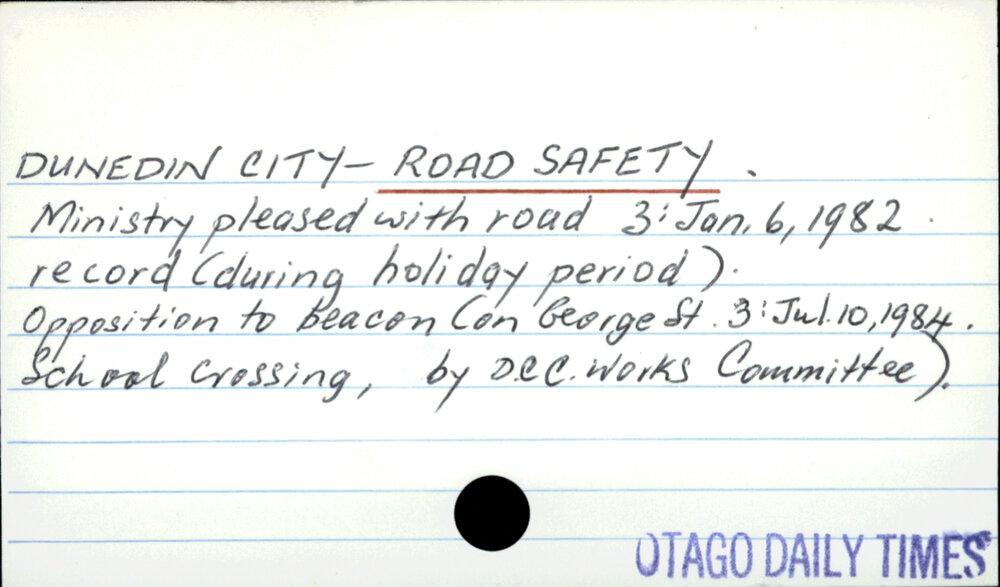 DUNEDIN CITY - ROAD SAFETY.
Ministry pleased with road 3: Jan. 6, 1982.
record (during holiday period).
Opposition to beacon (on George St. 3: Jul. 10, 1984.
School Crossing, by D.C.C. Works Committee).
OTAGO DAILY TIMES